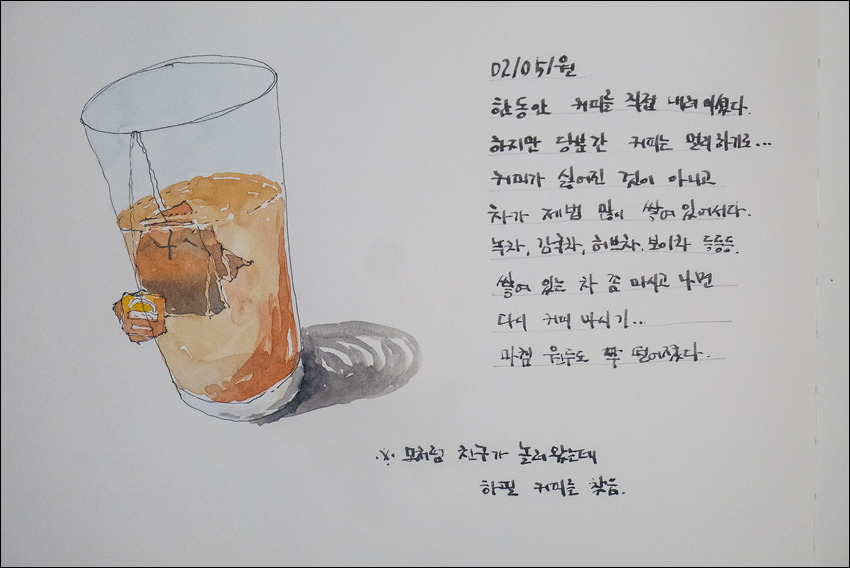 02/05/월
한동안 커피를 직접 내려 마셨다.
하지만 당분간 커피는 멀리하기로...
커피가 싫어진 것이 아니고
차가 제법 많이 쌓여 있어서다.
녹차, 감국차, 허브차, 보이차 등등등.
쌓여 있는 차 좀 마시고 나면
다시 커피 마시기..
마침 원두도 똑 떨어졌다.
※ 모처럼 친구가 놀러왔는데
하필 커피를 찾음.